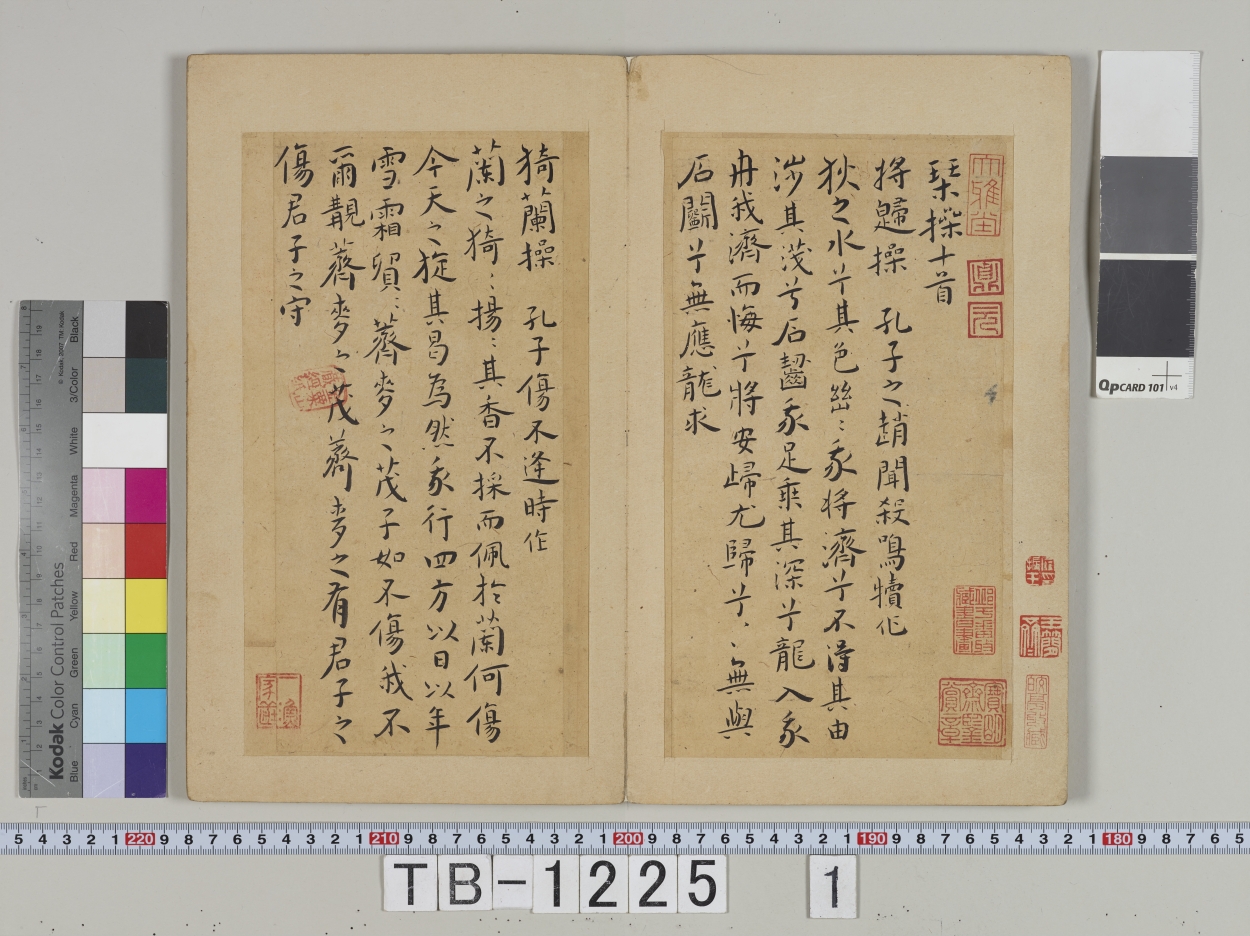 琹操十首
將歸操 孔子之趙聞殺鳴犢作
狄之水兮其色幽〻我將濟兮不得其由
涉其淺兮石齧我足乗其深兮龍入我
舟我濟而悔兮將安歸尤歸兮〻無與
石鬭兮無應龍求
猗蘭操 孔子傷不逢時作
蘭之猗〻揚〻其香不採而佩於蘭何傷
今天之旋其曷為然我行四方以日以年
雪霜貿〻薺麥之茂子如不傷我不
爾覯薺麥之茂薺麥之有君子之
傷君子之守
大雅堂
鼎元
Kodak Color Control Patches
© Kodak, 2007 TM: Kodak
Blue Cyan Green Yellow Red Magenta White 3/Color Black
QPCARD 101 v4
5 4 3 2 1 220 9 8 7 6 5 4 3 2 1 210 9 8 7 6 5 4 3 2 1 200 9 8 7 6 5 4 3 2 1 190 9 8 7 6 5 4 3 2 1 180 9 8 7 6 5
TB-1225 1